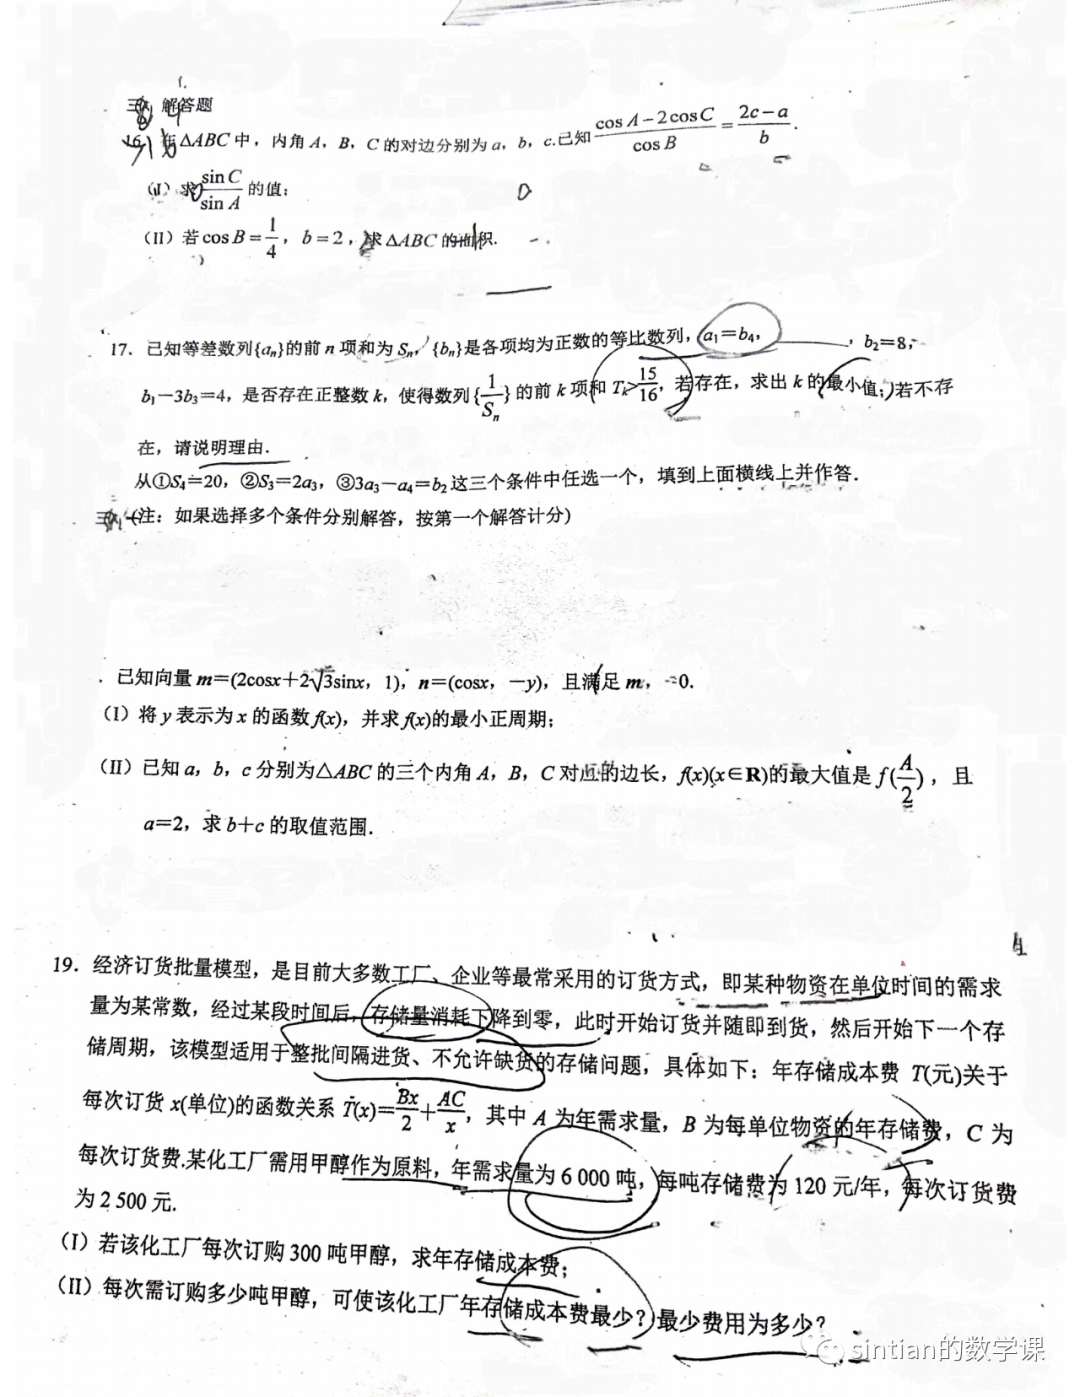 三、解答题
16. 在△ABC 中，内角 A，B，C 的对边分别为 a，b，c.已知 (cos A－2cos C)/cos B = (2c－a)/b.
(I) 求 sin C/sin A 的值；
(II) 若 cos B = 1/4，b = 2，求△ABC 的面积.
17. 已知等差数列{aₙ}的前 n 项和为 Sₙ，{bₙ}是各项均为正数的等比数列，a₁＝b₄，________，b₂＝8，
b₁－3b₃＝4，是否存在正整数 k，使得数列{1/Sₙ}的前 k 项和 Tₖ>15/16，若存在，求出 k 的最小值；若不存
在，请说明理由.
从①S₄＝20，②S₃＝2a₃，③3a₃－a₄＝b₂这三个条件中任选一个，填到上面横线上并作答.
(注：如果选择多个条件分别解答，按第一个解答计分)
已知向量 m＝(2cosx＋2√3sinx，1)，n＝(cosx，－y)，且满足 m，＝0.
(I) 将 y 表示为 x 的函数 f(x)，并求 f(x)的最小正周期；
(II) 已知 a，b，c 分别为△ABC 的三个内角 A，B，C 对应的边长，f(x)(x∈R)的最大值是 f(A/2)，且
a＝2，求 b＋c 的取值范围.
19. 经济订货批量模型，是目前大多数工厂、企业等最常采用的订货方式，即某种物资在单位时间的需求
量为某常数，经过某段时间后，存储量消耗下降到零，此时开始订货并随即到货，然后开始下一个存
储周期，该模型适用于整批间隔进货、不允许缺货的存储问题，具体如下：年存储成本费 T(元)关于
每次订货 x(单位)的函数关系 T(x)＝Bx/2＋AC/x，其中 A 为年需求量，B 为每单位物资的年存储费，C 为
每次订货费.某化工厂需用甲醇作为原料，年需求量为 6 000 吨，每吨存储费为 120 元/年，每次订货费
为 2 500 元.
(I) 若该化工厂每次订购 300 吨甲醇，求年存储成本费；
(II) 每次需订购多少吨甲醇，可使该化工厂年存储成本费最少？最少费用为多少？
sintian的数学课